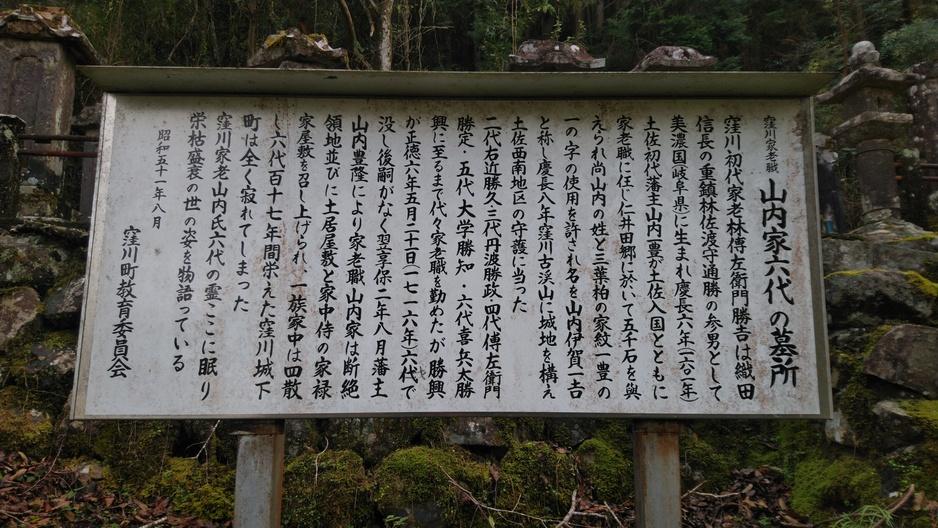 窪川家老職 山内家六代の墓所
窪川初代家老林傳左衛門勝吉は織田
信長の重鎮林佐渡守通勝の参男として
美濃国岐阜県に生まれ慶長六年(一六〇一年)
土佐初代藩主山内一豊が土佐入国とともに
家老職に任じ仁井田郷に於いて五千石を與
えられ尚山内の姓と三葉柏の家紋一豊の
一の字の使用を許され名を山内伊賀一吉
と称し慶長八年窪川古渓山に城地を構え
土佐西南地区の守護に当った
二代右近勝久三代丹波勝政・四代傳左衛門
勝定・五代大学勝知・六代喜兵衛勝
興に至るまで代々家老職を勤めたが勝興
が正徳六年五月二十日(一七一六年)六代で
没し後嗣がなく翌享保二年八月藩主
山内豊隆により家老職山内家は断絶
領地並びに土居屋敷と家中侍の家禄
家屋敷を召し上げられ一族家中は四散
し六代百十七年間栄えた窪川城下
町は全く寂れてしまった
窪川家老山内氏六代の霊ここに眠り
栄枯盛衰の世の姿を物語っている
昭和五十一年八月
窪川町教育委員会